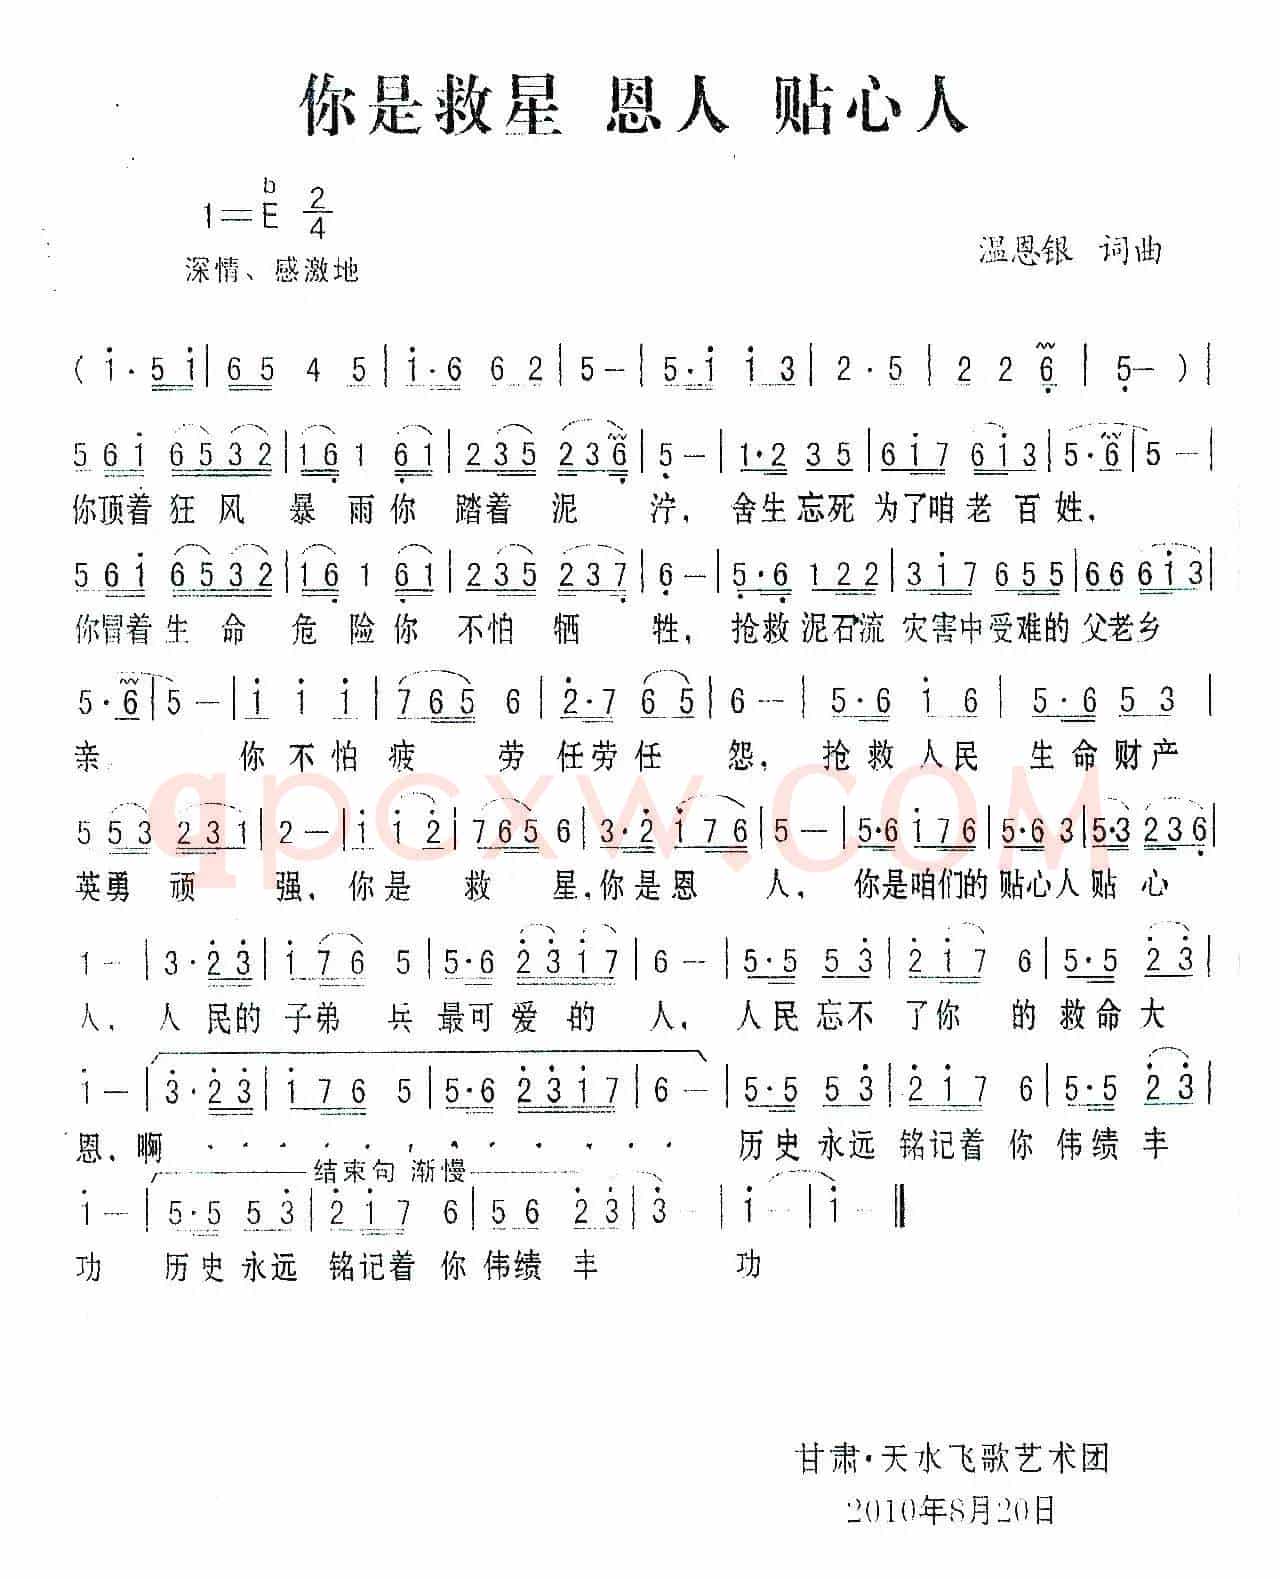 你是救星 恩人 贴心人
1=bE 2/4
温恩银 词曲
深情、感激地
( i · 5 i | 6 5 4 5 | i · 6 6 2 | 5 — | 5 · i i 3 | 2 · 5 | 2 2 6 | 5 — ) |
5 6 i 6 5 3 2 | 1 6 1 6 1 | 2 3 5 2 3 6 | 5 — | 1 · 2 3 5 | 6 i 7 6 i 3 | 5 · 6 | 5 — |
你顶着 狂 风 暴 雨 你 踏着 泥 泞, 舍生忘死 为了咱老百姓,
5 6 i 6 5 3 2 | 1 6 1 6 1 | 2 3 5 2 3 7 | 6 — | 5 · 6 1 2 2 | 3 i 7 6 5 5 | 6 6 6 i 3 |
你冒着 生 命 危 险 你 不怕 牺 牲, 抢救 泥石流 灾害中受难的 父老乡
5 · 6 | 5 — | i i i | 7 6 5 6 | 2 · 7 6 5 | 6 — | 5 · 6 i 6 | 5 · 6 5 3 |
亲 你 不 怕 疲 劳 任劳 任 怨, 抢 救 人 民 生 命 财 产
5 5 3 2 3 1 | 2 — | i i 2 | 7 6 5 6 | 3 · 2 i 7 6 | 5 — | 5 · 6 i 7 6 | 5 · 6 3 | 5 · 3 2 3 6 |
英勇 顽 强, 你 是 救 星,你是恩 人, 你是咱们的 贴心人 贴 心
1 — | 3 · 2 3 | i 7 6 5 | 5 · 6 2 3 i 7 | 6 — | 5 · 5 5 3 | 2 i 7 6 | 5 · 5 2 3 |
人, 人 民的 子弟 兵 最可 爱 的 人, 人民 忘不 了你 的 救命 大
i — | 3 · 2 3 | i 7 6 5 | 5 · 6 2 3 i 7 | 6 — | 5 · 5 5 3 | 2 i 7 6 | 5 · 5 2 3 |
恩, 啊 · · · · · · · · · · · · 历史 永远 铭记着 你 伟绩 丰
结束句 渐慢
i — | 5 · 5 5 3 | 2 i 7 6 | 5 6 2 3 | 3 — | i — | i — ‖
功 历史 永远 铭记着 你 伟绩 丰 功
甘肃·天水飞歌艺术团
2010年8月20日
qpcxw.COM